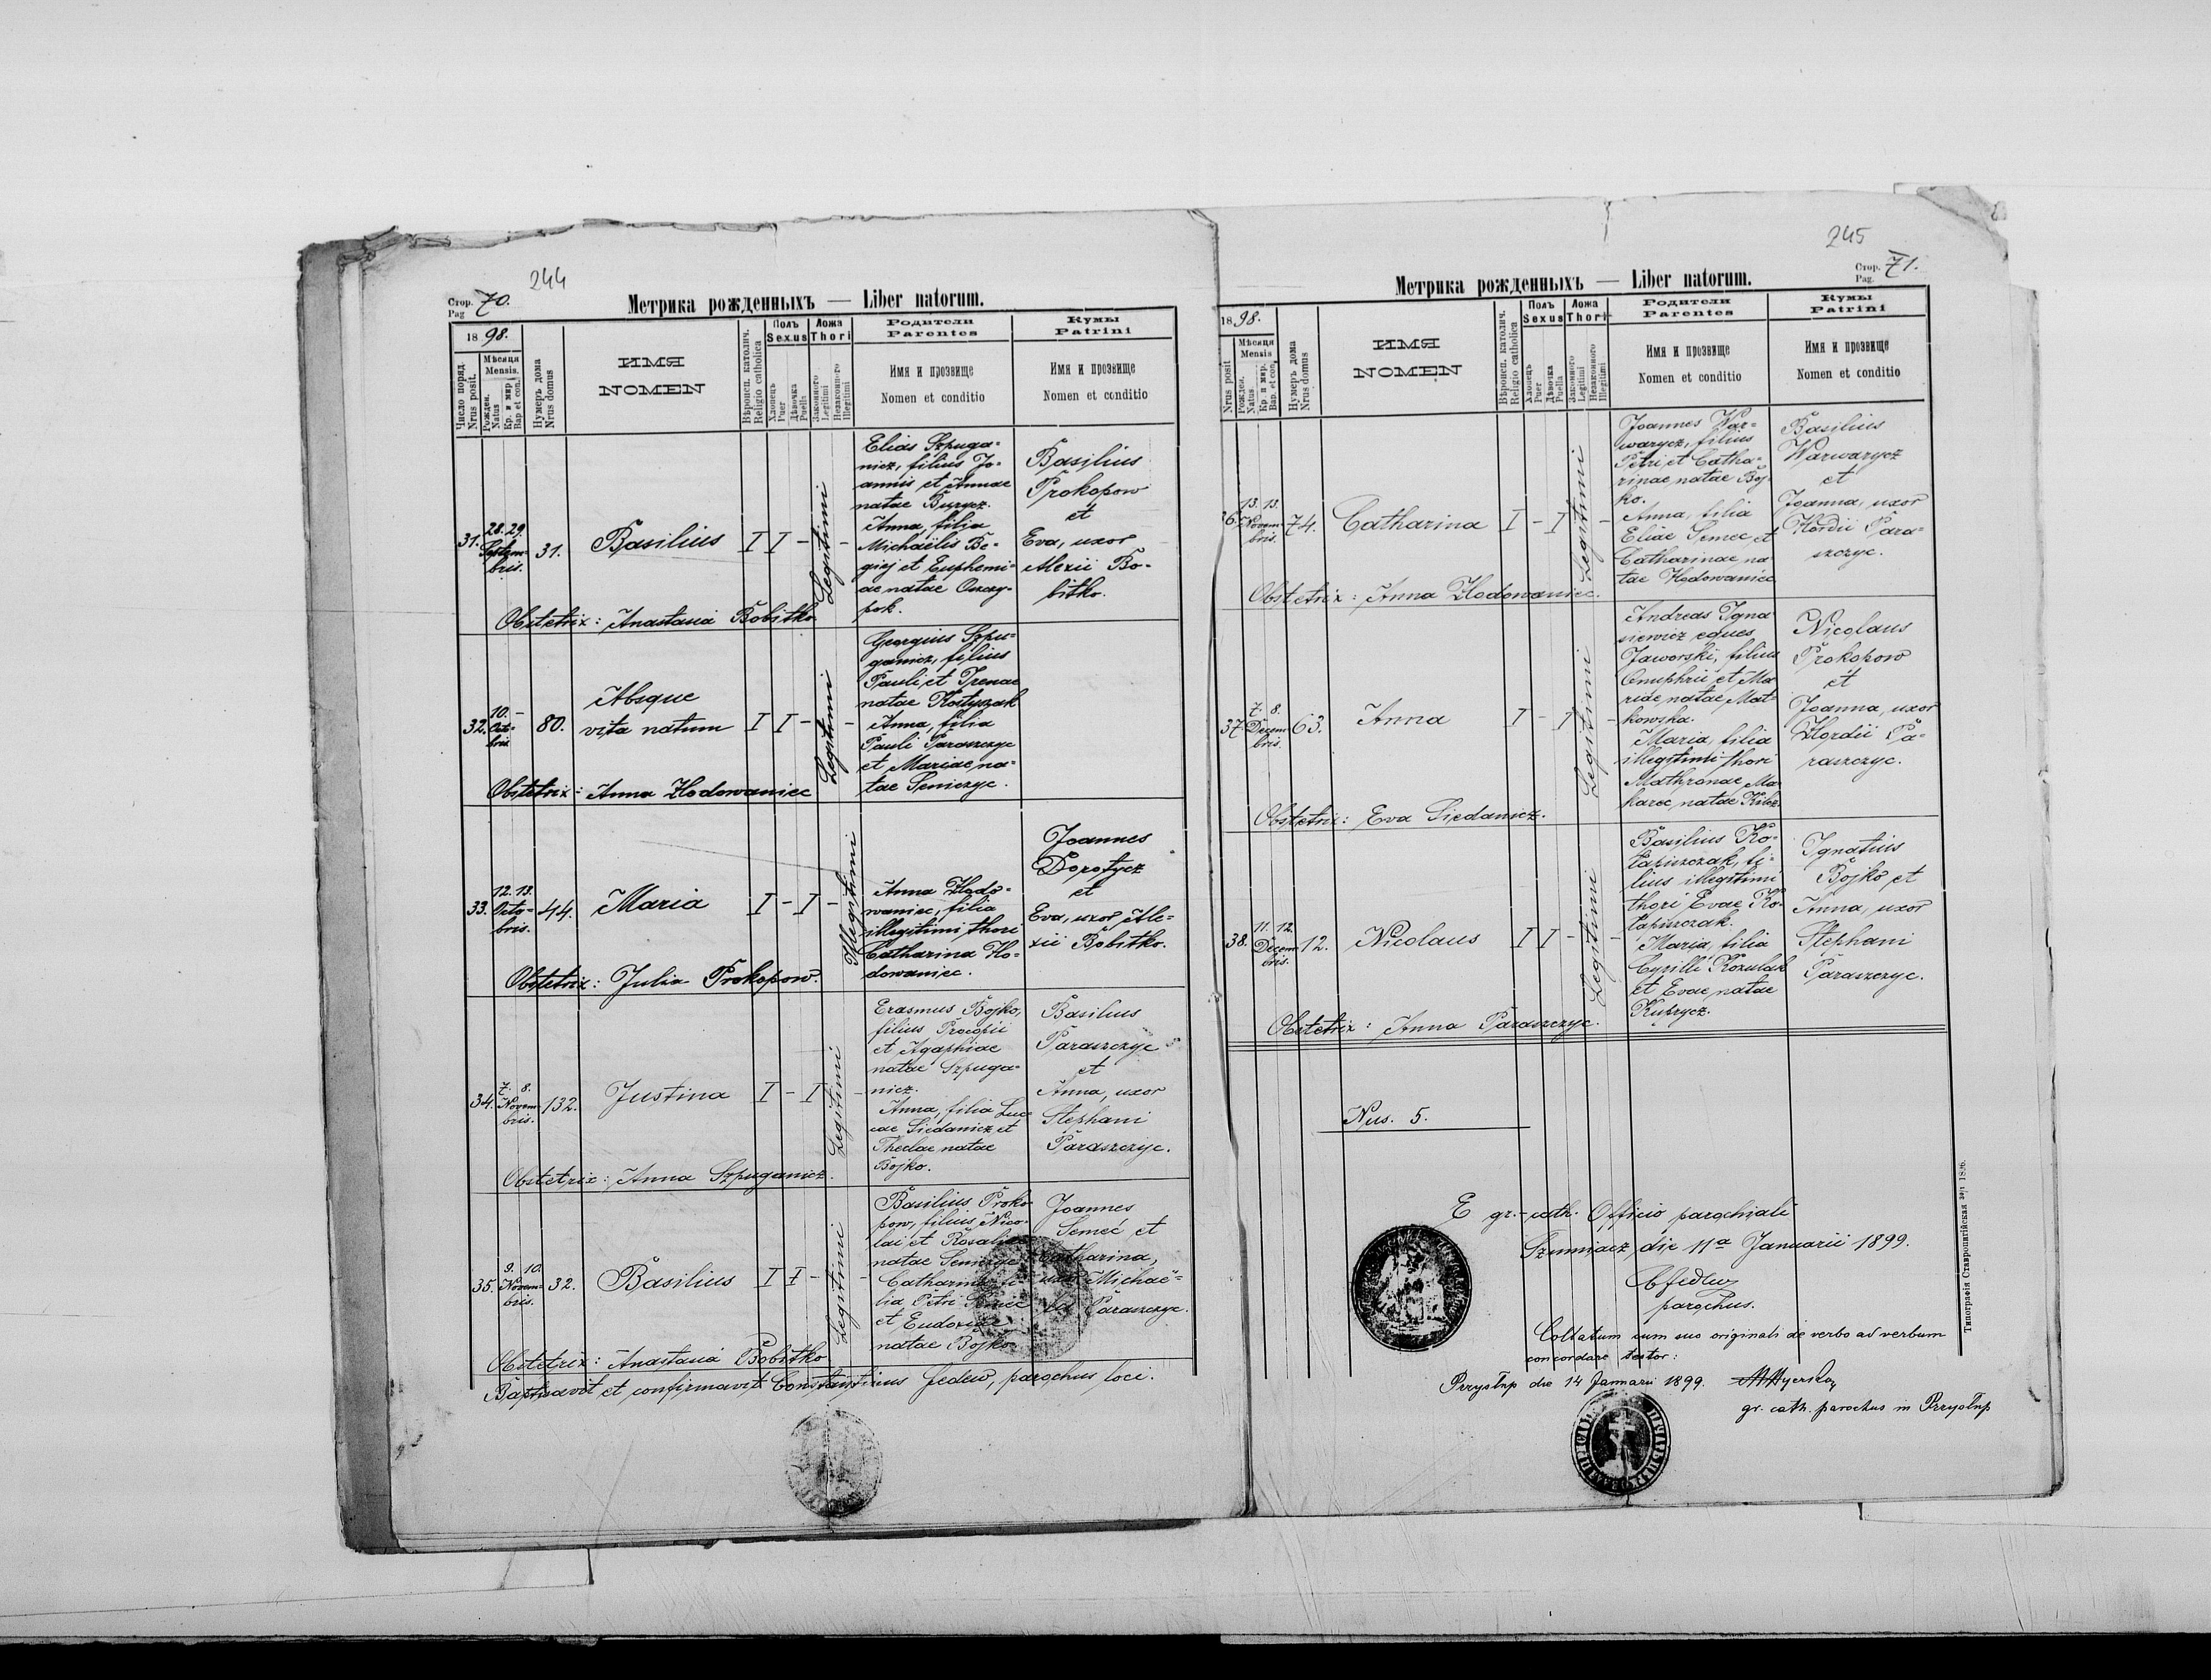 244
Стор. 70.
Pag
Метрика рожденныхъ — Liber natorum.
1898.
Число поряд.
Nrus posit.
Мѣсяця
Mensis.
Рожден.
Natus
Кр. и мир.
Bap. et con.
Нумеръ дома
Nrus domus
ИМЯ
NOMEN
Вѣроисп. католич.
Religio catholica
Полъ
Sexus
Хлопецъ
Puer
Дѣвочка
Puella
Ложа
Thori
Законного
Legitimi
Незаконного
Illegitimi
Родители
Parentes
Имя и прозвище
Nomen et conditio
Кумы
Patrini
Имя и прозвище
Nomen et conditio
31.
28. 29.
Septem-
bris.
31.
Basilius
I I - -
Legitimi
Elias Szpuga-
nicz, filius Jo-
annis et Annae
natae Burycz.
Anna, filia
Michaëlis Be-
giej et Euphemi-
ae natae Onczy-
pok.
Basilius
Prokopow
et
Eva, uxor
Alexii Bo-
bitko.
Obstetrix: Anastasia Bobitko
32.
10. -
Octo-
bris
80.
Absque
vita natum
I I - -
Legitimi
Georgius Szpu-
ganicz, filius
Pauli et Irenae
natae Kotyszak
Anna, filia
Pauli Paraszczyc
et Mariae na-
tae Seniczyc.
Obstetrix: Anna Hodowaniec
33.
12. 13.
Octo-
bris.
44.
Maria
I - I -
Illegitimi
Anna Hodo-
waniec, filia
illegitimi thori
Catharina Ho-
dowaniec.
Joannes
Dorotycz
et
Eva, uxor Ale-
xii Bobitko.
Obstetrix: Julia Prokopow.
34.
7. 8.
Novem-
bris.
132.
Justina
I - I -
Legitimi
Erasmus Bojko,
filius Procopii
et Agaphiae
natae Szpuga-
nicz.
Anna, filia Lu-
cae Siedanicz et
Theclae natae
Bojko.
Basilius
Paraszczyc
et
Anna, uxor
Stephani
Paraszczyc.
Obstetrix: Anna Szpuganicz.
35.
9. 10.
Novem-
bris.
32.
Basilius
I I - -
Legitimi
Basilius Proko-
pow, filius Nico-
lai et Rosaliae
natae Seniczyc
Catharina, fi-
lia Petri Semec
et Eudoxiae
natae Bojko.
Joannes
Semeć et
Catharina,
uxor Michaë-
lis Paraszczyc.
Obstetrix: Anastasia Bobitko
Baptisavit et confirmavit Constantinus Fedew, parochus loci.
245
Стор. 71.
Pag.
Метрика рожденныхъ — Liber natorum.
1898.
Nrus posit
Мѣсяця
Mensis
Рожден.
Natus
Кр. и мир.
Bap. et con.
Нумеръ дома
Nrus domus
ИМЯ
NOMEN
Вѣроисп. католич.
Religio catholica
Полъ
Sexus
Хлопецъ
Puer
Дѣвочка
Puella
Ложа
Thori
Законного
Legitimi
Незаконного
Illegitimi
Родители
Parentes
Имя и прозвище
Nomen et conditio
Кумы
Patrini
Имя и прозвище
Nomen et conditio
36.
13. 13.
Novem-
bris.
74.
Catharina
I - I -
Legitimi
Joannes War-
warycz, filius
Petri et Catha-
rinae, natae Boj-
ko.
Anna, filia
Eliae Semec et
Catharinae na-
tae Hodowaniec
Basilius
Warwarycz
et
Joanna, uxor
Hordii Para-
szczyc.
Obstetrix: Anna Hodowaniec.
37.
7. 8.
Decem-
bris.
63.
Anna
I - I -
Legitimi
Andreas Igna-
siewicz eques
Jaworski, filius
Onuphrii et Ma-
riae natae Mat-
kowska.
Maria, filia
illegitimi thori
Mathronae Ma-
karec natae Kibz.
Nicolaus
Prokopow
et
Joanna, uxor
Hordii Pa-
raszczyc.
Obstetrix: Eva Siedanicz.
38.
11. 12.
Decem-
bris.
12.
Nicolaus
I I - -
Legitimi
Basilius Ko-
łapiszczak, fi-
lius illegitimi
thori Evae Ko-
łapiszczak.
Maria, filia
Cyrilli Kozulak
et Evae natae
Kuprycz.
Ignatius
Bojko et
Anna, uxor
Stephani
Paraszczyc.
Obstetrix: Anna Paraszczyc.
Nus. 5.
E gr.-cath. Officio parochiali
Szumiacz, die 11a Januarii 1899.
CFedew
parochus.
Collatum cum suo originali de verbo ad verbum
concordare testor:
Przysłup die 14 Januarii 1899.
gr. cath. parochus in Przysłup
Типографія Ставропигійская